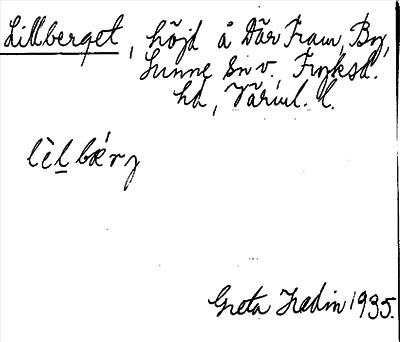 Lillberget, höjd å Där Fram, By,
Sunne sn v. Fryksd.
hd, Värml. l.
lèl bǽrj
Greta Hedin 1935.